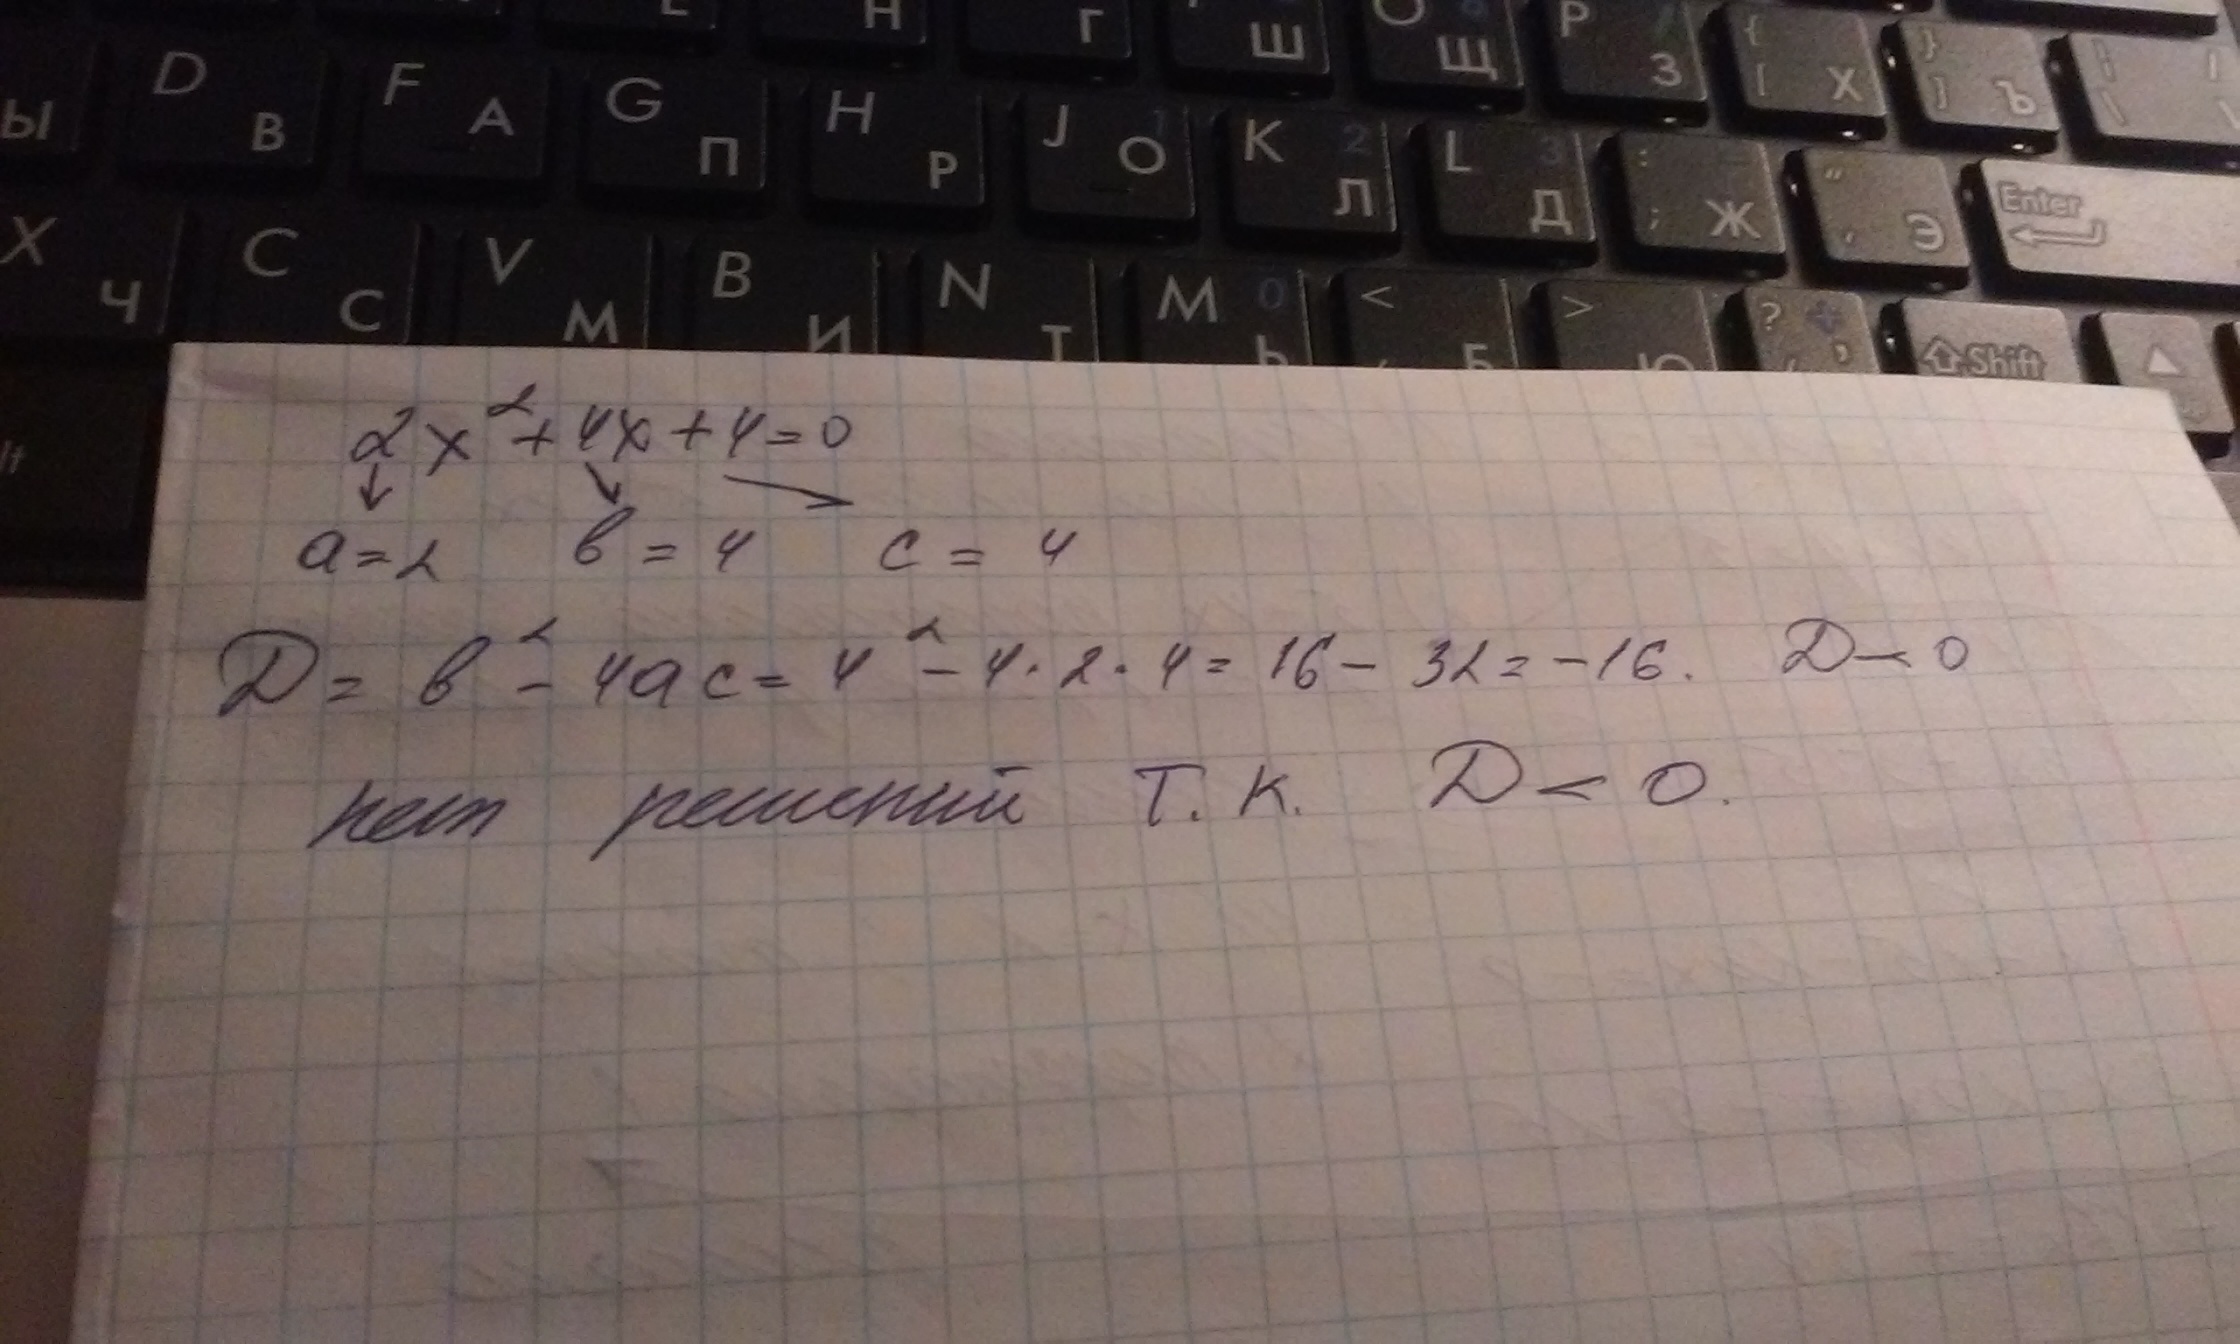 Н Г Ш Щ P З { [ Х } ] Ъ
Ы D В F А G П H Р J О 1 K Л 2 L Д 3 : ; Ж " ' Э Enter
X Ч C С V М B И N Т M Ь 0 < Б > Ю ? Shift
2x²+4x+4=0
a=2 в=4 c=4
D=в²-4ac=4²-4·2·4=16-32=-16. D<0
нет решений Т.К. D<0.